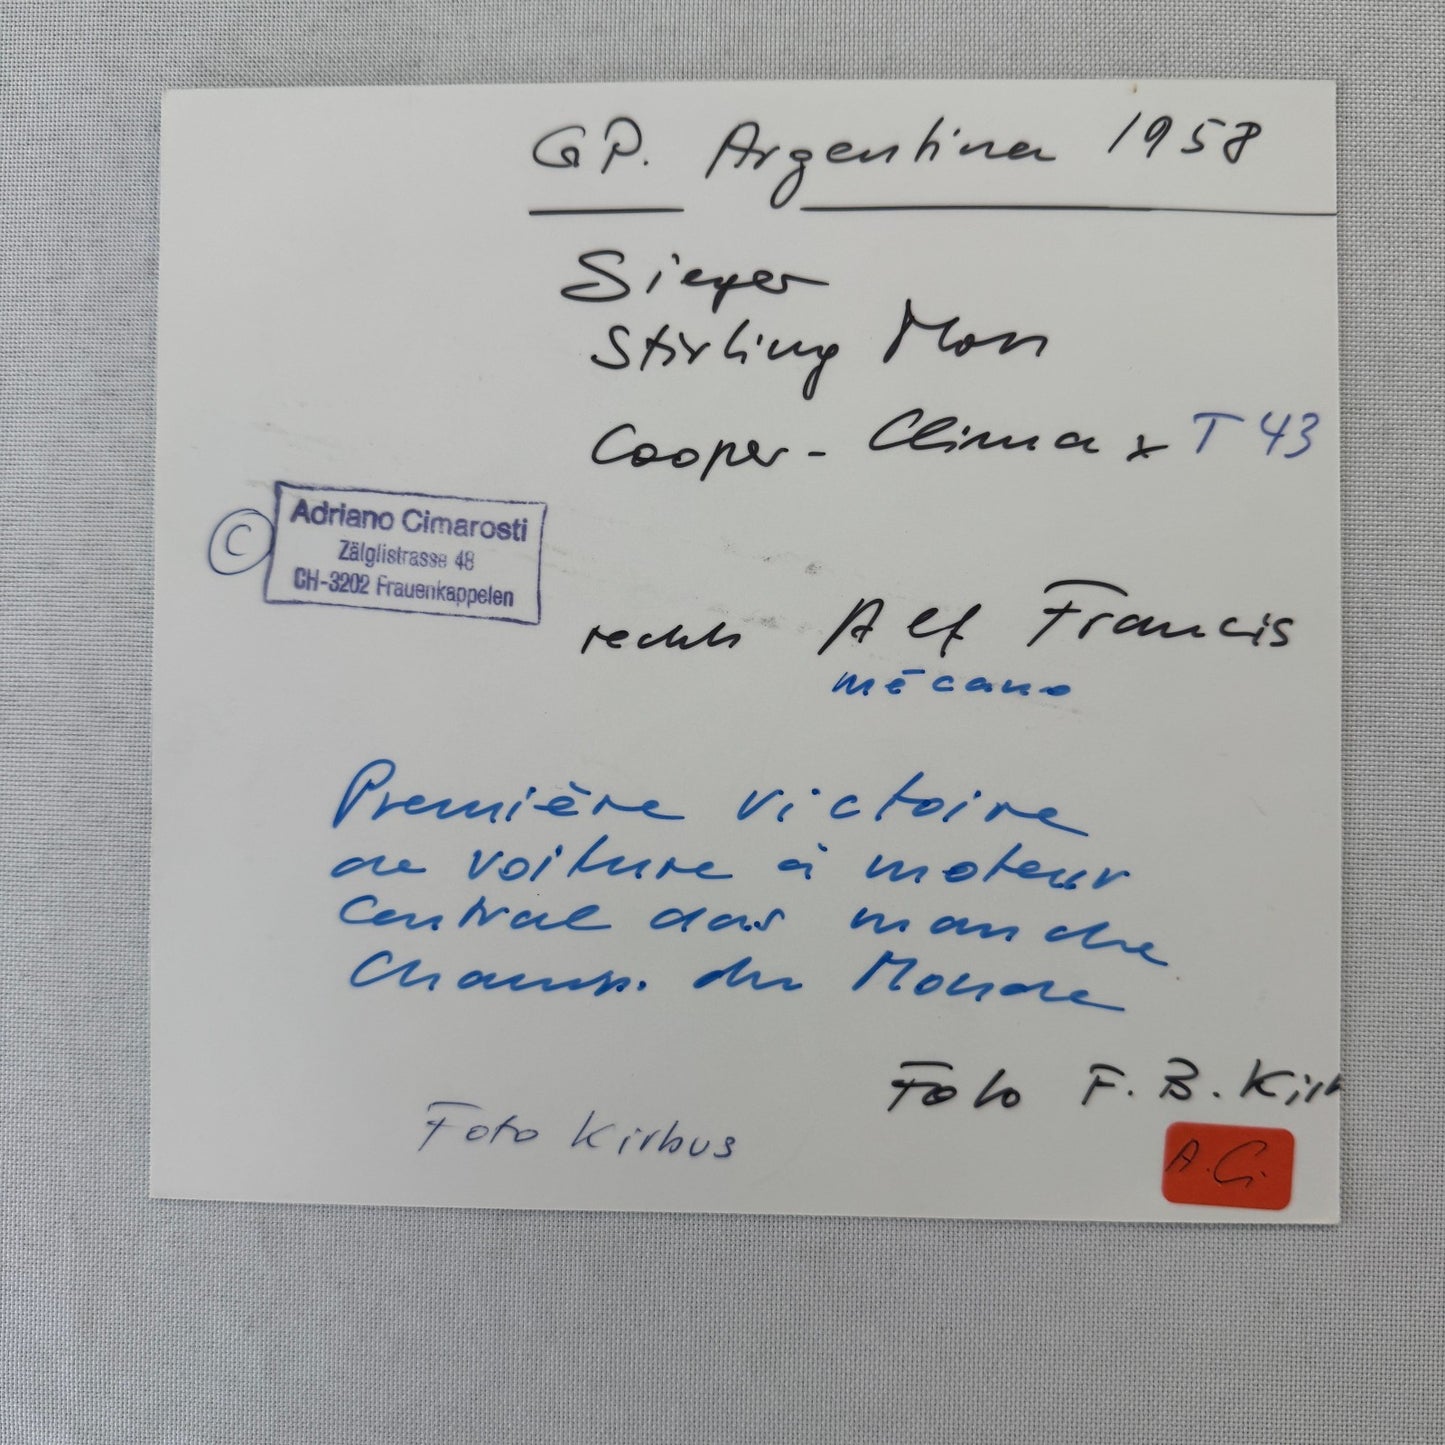 GP. Argentinien 1958
Sieger
Stirling Moss
Cooper-Climax T43
©
Adriano Cimarosti
Zälglistrasse 48
CH-3202 Frauenkappelen
rechts Alf Francis
mécano
Première victoire
de voiture à moteur
Central manche
Champ. du Monde
Foto F. B. Kirb
Foto Kirbus
A.C.